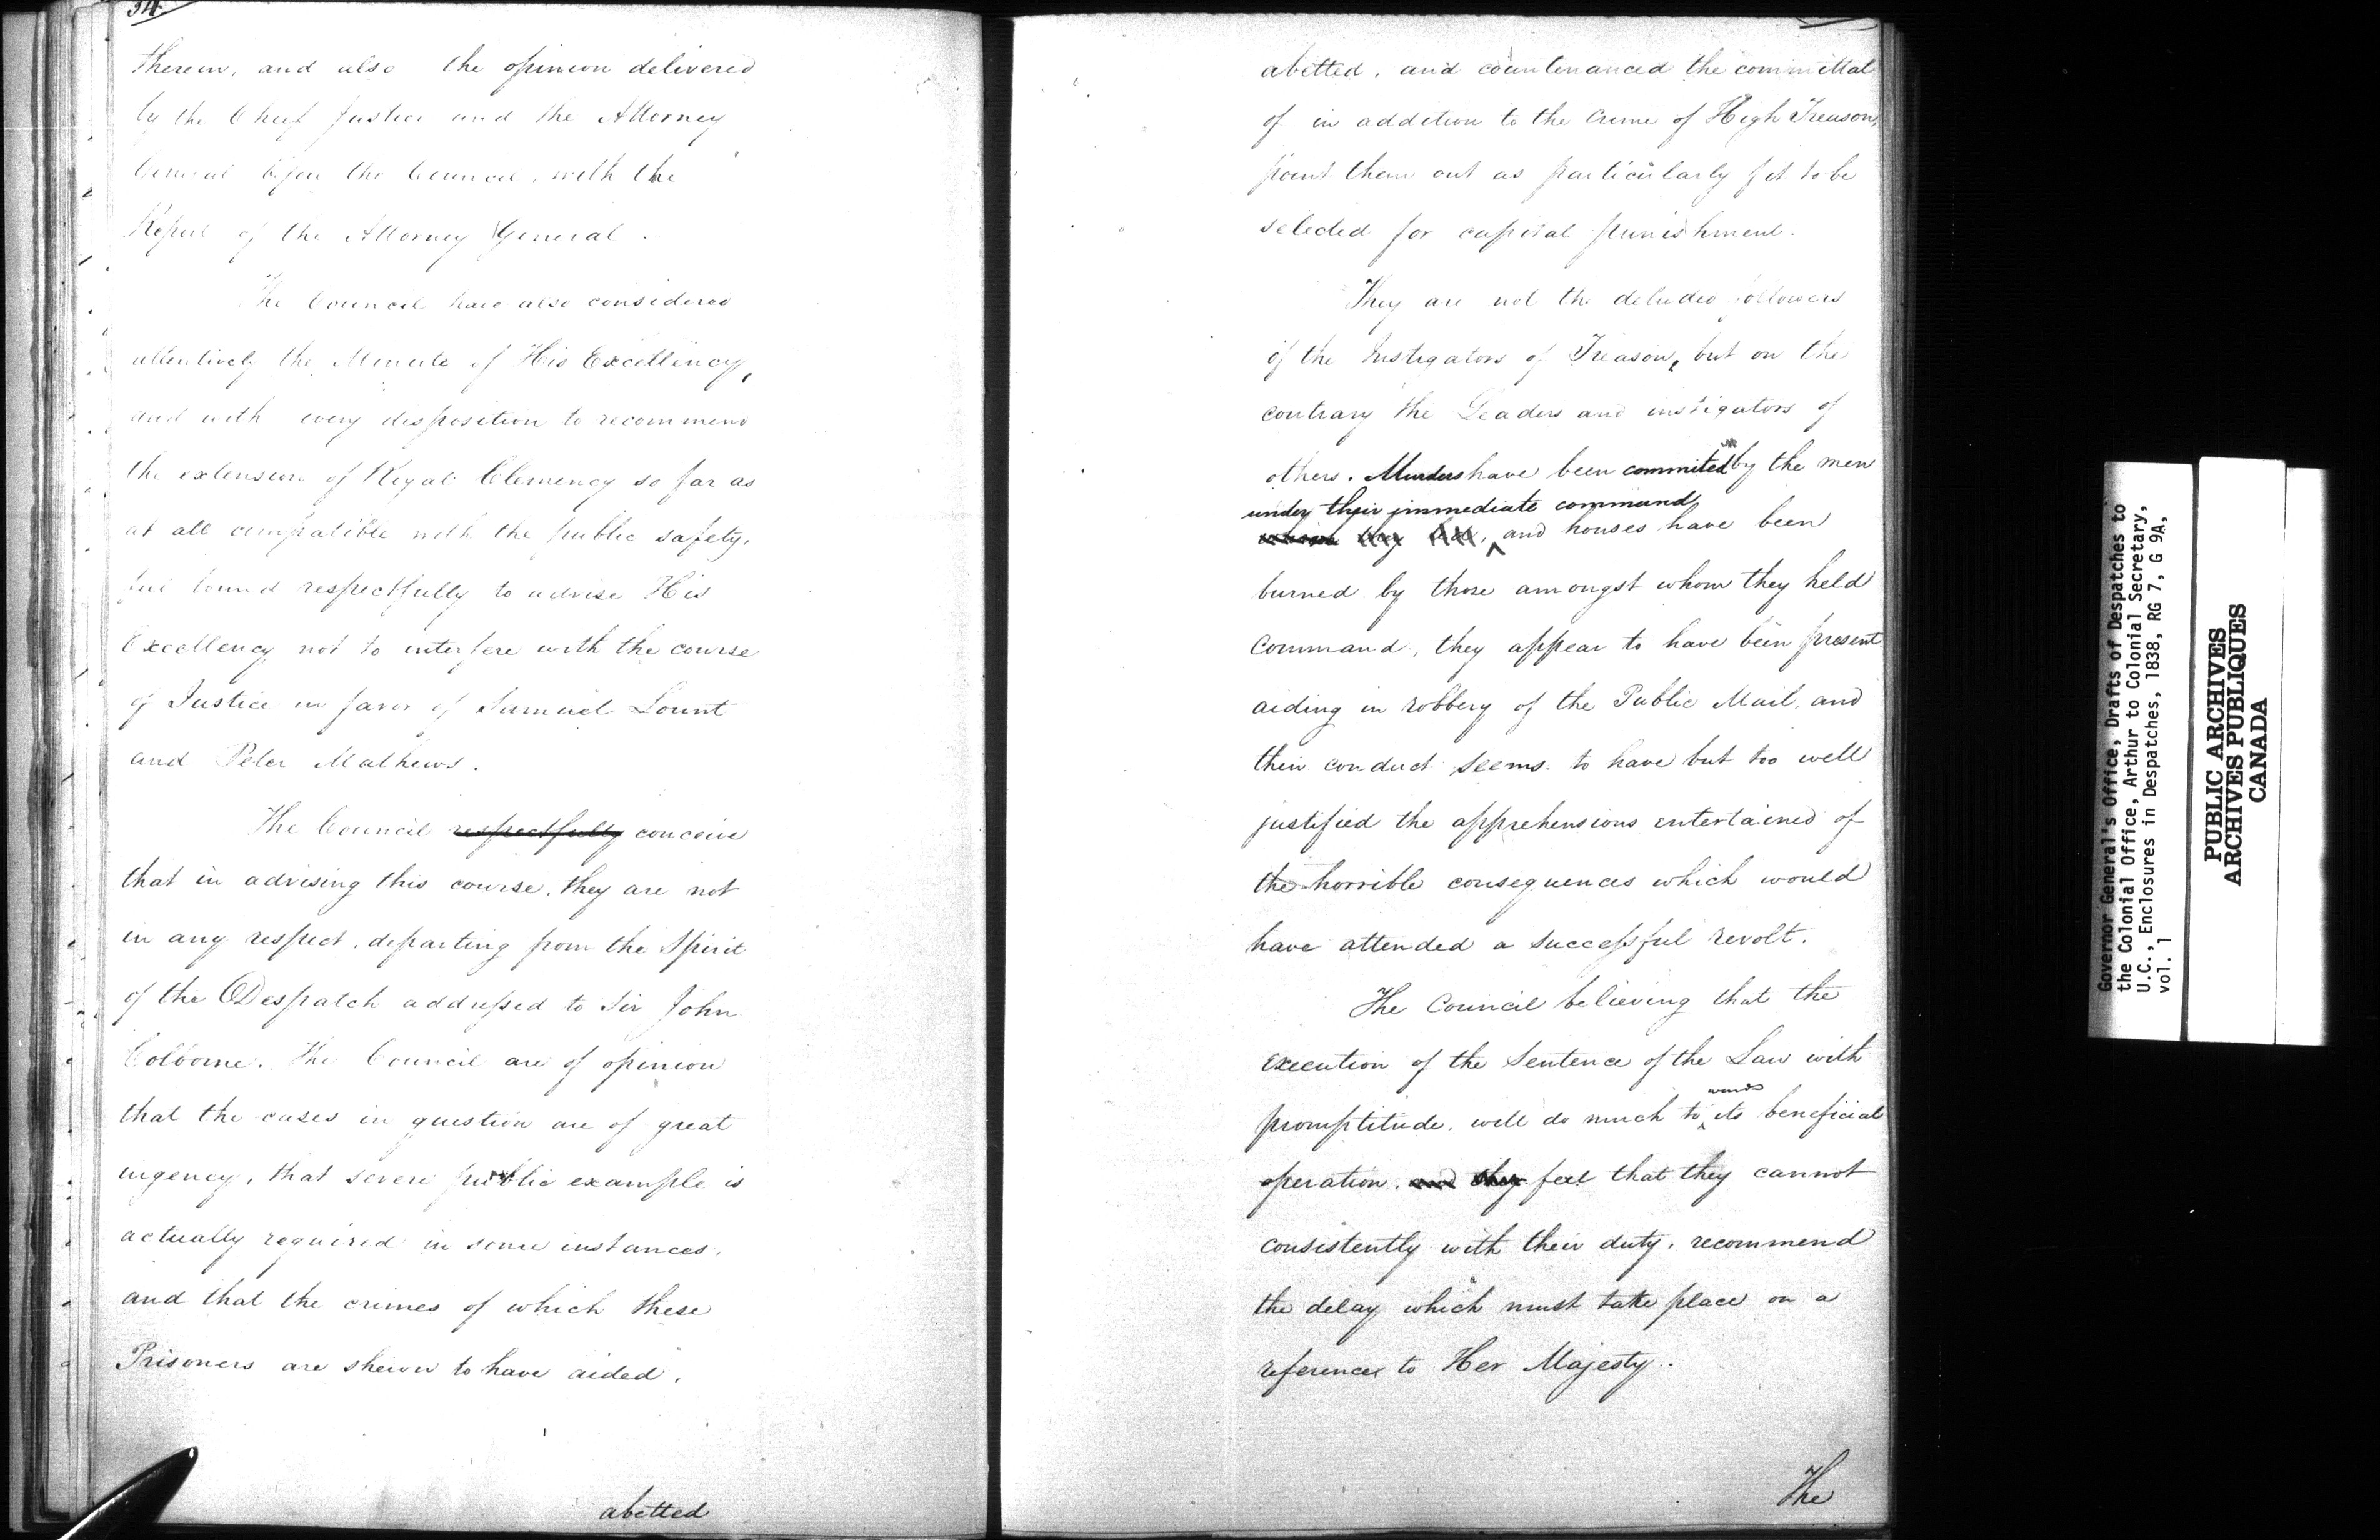 34.
therein, and also the opinion delivered
by the Chief Justice and the Attorney
General before the Council, with the
Report of the Attorney General.
The Council have also considered
attentively the Minute of His Excellency,
and with every disposition to recommend
the extension of Royal Clemency so far as
at all compatible with the public safety,
feel bound respectfully to advise His
Excellency not to interfere with the course
of Justice in favor of Samuel Lount
and Peter Mathews.
The Council respectfully conceive
that in advising this course, they are not
in any respect, departing from the Spirit
of the Despatch addressed to Sir John
Colborne. The Council are of opinion
that the cases in question are of great
urgency, that severe public example is
actually required in some instances,
and that the crimes of which these
Prisoners are shewn to have aided,
abetted
abetted, and countenanced the committal
of in addition to the Crime of High Treason,
point them out as particularly fit to be
selected for capital punishment.
They are not the deluded followers
of the Instigators of Treason, but on the
contrary the Leaders and instigators of
others. Murders have been commited by the men
under their immediate command
whom they, and houses have been
burned by those amongst whom they held
Command, they appear to have been present
aiding in robbery of the Public Mail, and
their conduct seems to have but too well
justified the apprehensions entertained of
the horrible consequences which would
have attended a successful revolt.
The Council believing that the
Execution of the Sentence of the Law with
wards
promptitude, will do much to its beneficial
operation, and they feel that they cannot
consistently with their duty, recommend
the delay which must take place on a
reference to Her Majesty.
The
Governor General's Office, Drafts of Despatches to
the Colonial Office, Arthur to Colonial Secretary,
U.C., Enclosures in Despatches, 1838, RG 7, G 9A,
vol. 1
PUBLIC ARCHIVES
ARCHIVES PUBLIQUES
CANADA